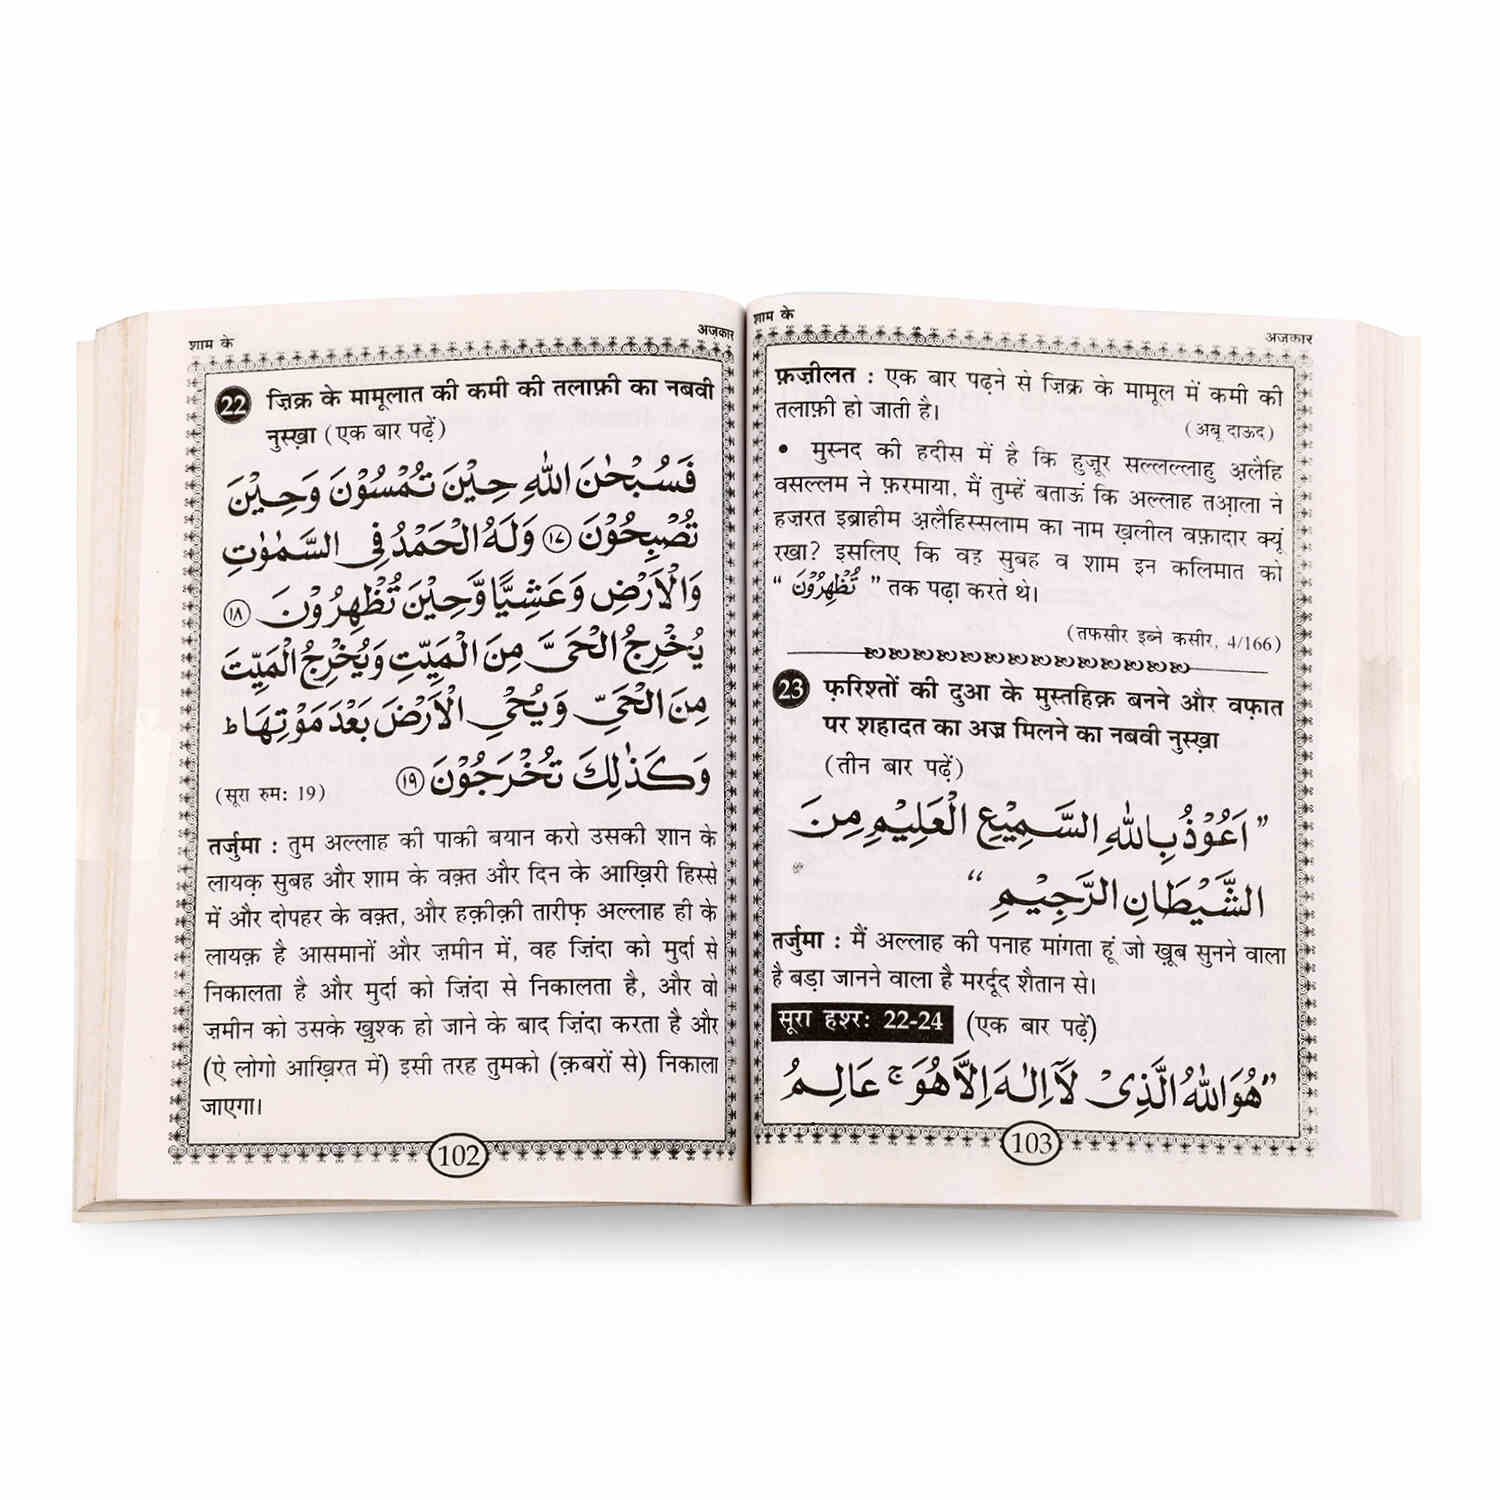 शाम के अज़कार
22 ज़िक्र के मामूलात की कमी की तलाफ़ी का नबवी
नुस्ख़ा (एक बार पढ़ें)
فَسُبْحٰنَ اللّٰهِ حِيْنَ تُمْسُوْنَ وَحِيْنَ
تُصْبِحُوْنَ ۝١٧ وَلَهُ الْحَمْدُ فِي السَّمٰوٰتِ
وَالْاَرْضِ وَعَشِيًّا وَّحِيْنَ تُظْهِرُوْنَ ۝١٨
يُخْرِجُ الْحَيَّ مِنَ الْمَيِّتِ وَيُخْرِجُ الْمَيِّتَ
مِنَ الْحَيِّ وَيُحْيِ الْاَرْضَ بَعْدَ مَوْتِهَا ط
وَكَذٰلِكَ تُخْرَجُوْنَ ۝١٩
(सूरा रुम: 19)
तर्जुमा : तुम अल्लाह की पाकी बयान करो उसकी शान के
लायक़ सुबह और शाम के वक़्त और दिन के आख़िरी हिस्से
में और दोपहर के वक़्त, और हक़ीक़ी तारीफ़ अल्लाह ही के
लायक़ है आसमानों और ज़मीन में, वह ज़िंदा को मुर्दा से
निकालता है और मुर्दा को ज़िंदा से निकालता है, और वो
ज़मीन को उसके ख़ुश्क हो जाने के बाद ज़िंदा करता है और
(ऐ लोगो आख़िरत में) इसी तरह तुमको (क़बरों से) निकाला
जाएगा।
102
शाम के अज़कार
फ़ज़ीलत : एक बार पढ़ने से ज़िक्र के मामूल में कमी की
तलाफ़ी हो जाती है।
(अबू दाऊद)
• मुस्नद की हदीस में है कि हुज़ूर सल्लल्लाहु अ़लैहि
वसल्लम ने फ़रमाया, मैं तुम्हें बताऊं कि अल्लाह तआ़ला ने
हज़रत इब्राहीम अ़लैहिस्सलाम का नाम ख़लील वफ़ादार क्यूं
रखा? इसलिए कि वह सुबह व शाम इन कलिमात को
“ تُظْهِرُوْنَ ” तक पढ़ा करते थे।
(तफसीर इब्ने कसीर, 4/166)
23 फ़रिश्तों की दुआ के मुस्तहिक़ बनने और वफ़ात
पर शहादत का अज्र मिलने का नबवी नुस्ख़ा
(तीन बार पढ़ें)
” اَعُوْذُ بِاللّٰهِ السَّمِيْعِ الْعَلِيْمِ مِنَ
الشَّيْطَانِ الرَّجِيْمِ “
तर्जुमा : मैं अल्लाह की पनाह मांगता हूं जो ख़ूब सुनने वाला
है बड़ा जानने वाला है मरर्दूद शैतान से।
सूरा हश्र: 22-24 (एक बार पढ़ें)
” هُوَ اللّٰهُ الَّذِيْ لَآ اِلٰهَ اِلَّا هُوَ ۚ عَالِمُ
103